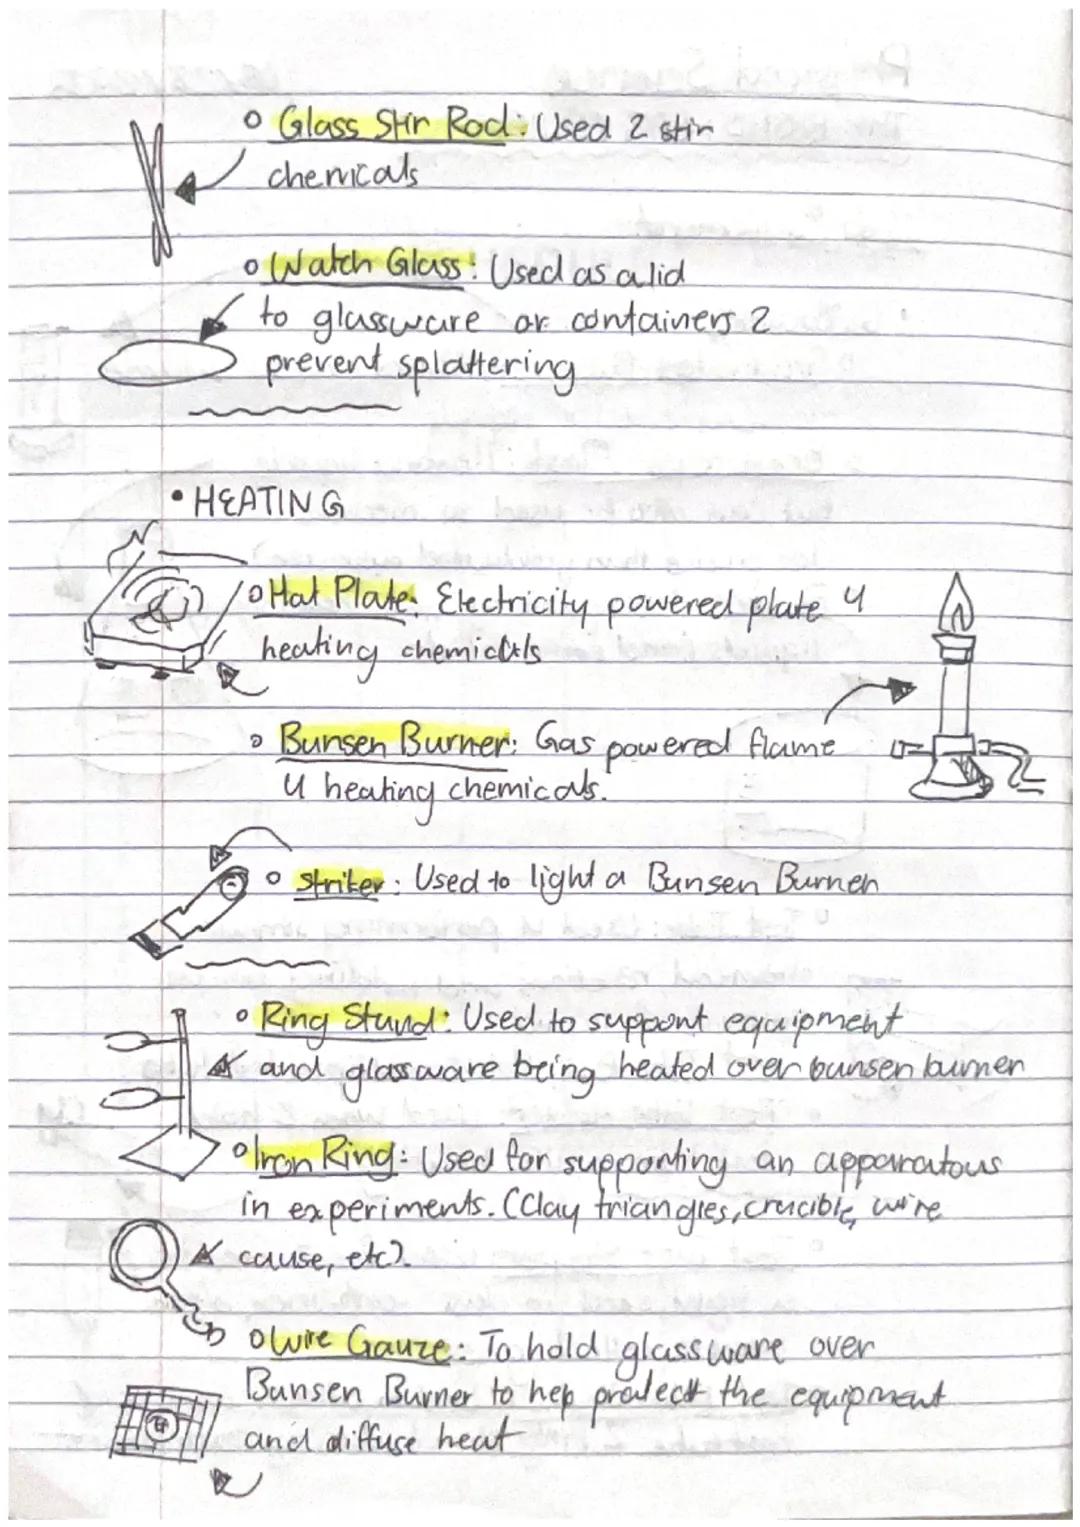 Glass Stir Rod: Used 2 stir
chemicals
Watch Glass: Used as a lid
to glassware or containers 2
prevent splattering
• HEATING
Hot Plate: Electricity powered plate 4
heating chemicals
Bunsen Burner: Gas powered flame
4 heating chemicals.
Striker: Used to light a Bunsen Burner
Ring Stand: Used to support equipment
and glassware being heated over bunsen burner
Iron Ring: Used for supporting an apparatous
in experiments. (Clay triangles, crucible, wire
cause, etc).
Wire Gauze: To hold glassware over
Bunsen Burner to hep protect the equipment
and diffuse heat